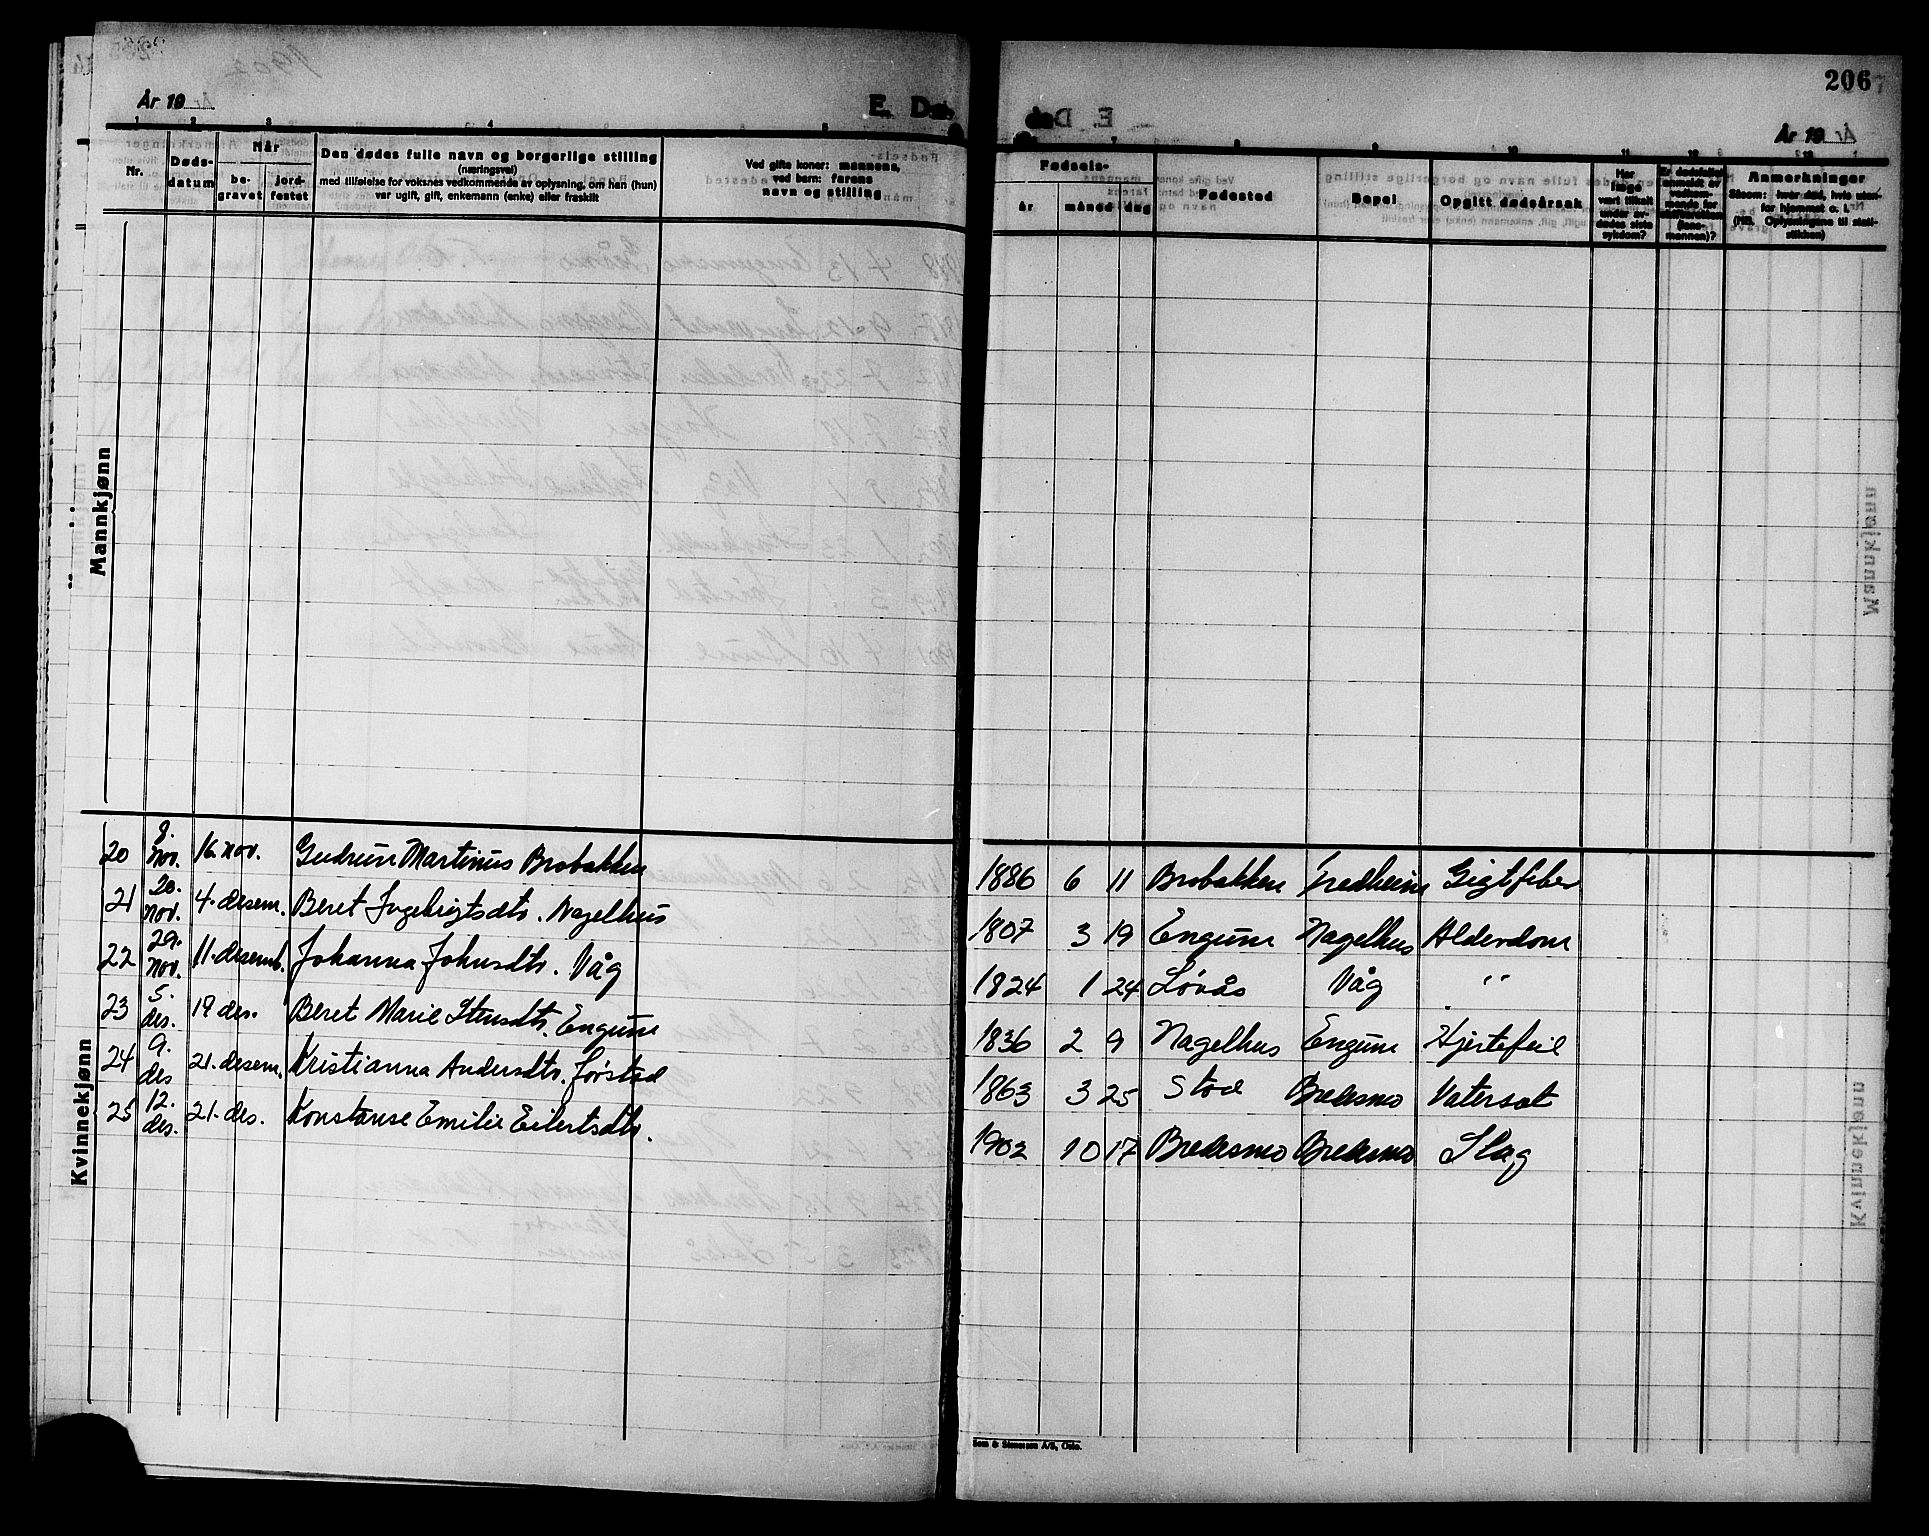 206
År 19
E. Dø-
de
År 19
1 2 3 4 5
7 8 9 10 11 12 13
Nr.
Døds-
datum
Når
be-
gravet
jord-
festet
Den dødes fulle navn og borgerlige stilling
(næringsvei)
med tilføielse for voksnes vedkommende av oplysning, om han (hun)
var ugift, gift, enkemann (enke) eller fraskilt
Ved gifte koner: mannens,
ved barn: farens
navn og stilling
Fødsels-
år måned dag
Fødested
Bopel
Opgitt dødsårsak
Har
læge
vært tilkalt
under av-
dødes siste
sykdom?
Er dødsfallet
anmeldt av
vedkom-
mende for
skifteretten
(lens-
mannen)?
Anmerkninger
Såsom: hvor død, hvis uten-
for hjemmet o. l.
(NB. Oplysningene til stati-
stikken)
Mannkjønn
Kvinnekjønn
20 8. nov. 16. nov. Gudrun Martinus Brobakken 1886 6 11 Brobakken Fredheim Gigtfeber
21 20. nov. 4. desem. Beret Ingebrigtsdtr. Nagelhus 1807 3 19 Engum Nagelhus Alderdom
22 29. nov. 11. desemb. Johanna Johnsdtr. Våg 1824 1 24 Løvås Våg "
23 5. des. 19 des. Beret Marie Stensdtr. Engum 1836 2 9 Nagelhus Engum Hjertefeil
24 9. des 21. desem. Kristianna Andersdtr. Jørstad 1863 3 25 Stod Bredesmo Vatersot
25 12. des. 21. des. Konstanse Emilie Eilertsdtr. 1902 10 17 Bredesmo Bredesmo Slag
Sem & Stenersen A/S, Oslo.